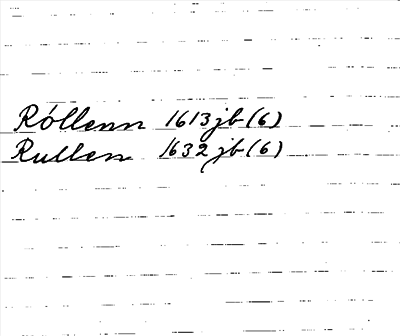 Róllenn 1613 jb (6)
Rullen 1632 jb (6)